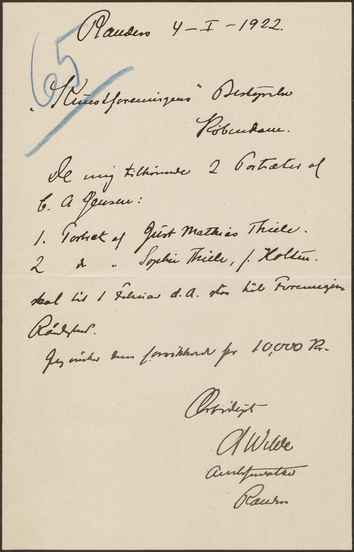 65
Randers 4-I-1922.
"Kunstforeningens" Bestyrelse
København.
De mig tilhørende 2 Portræter af
C. A Jensen:
1. Portræt af Just Mathias Thiele.
2 do " Sophie Thiele, f. Holten.
skal til 1 Februar d.A. stå til Foreningens
Rådighed.
Jeg ønsker dem forsikrede for 10,000 Kr.
Ærbødigst
A Wilde
Amtsforvalter
Randers